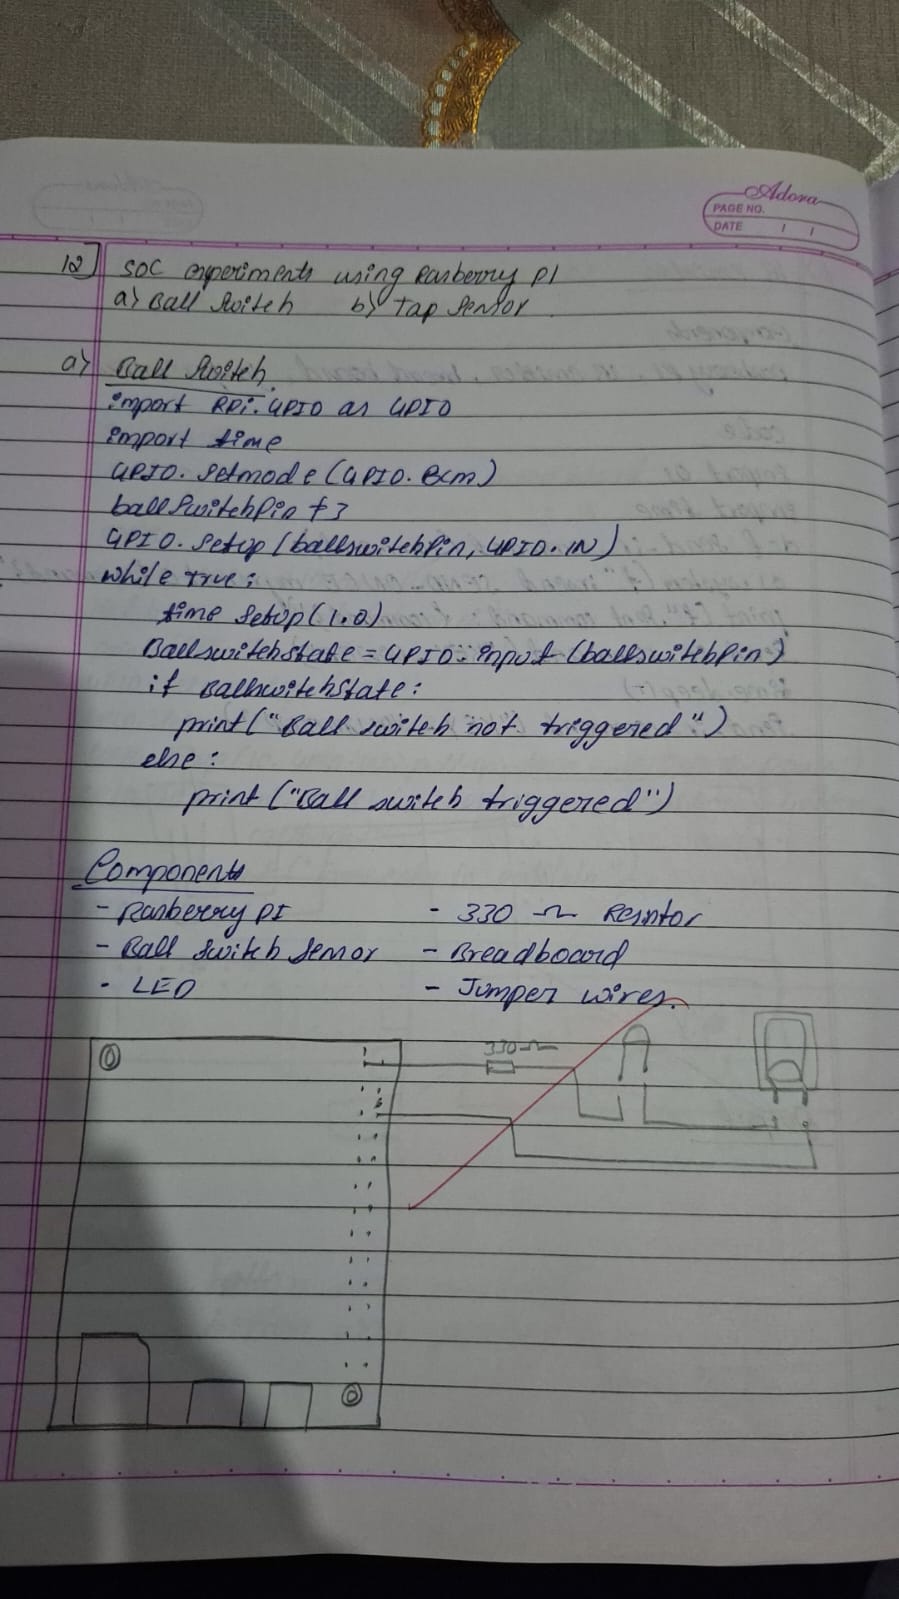 Adora
PAGE NO.
DATE / /
12] SOC experiments using Rasberry PI
a) Ball Switch b) Tap Sensor
a) Ball Switch
import RPi.GPIO as GPIO
import time
GPIO.setmode(GPIO.BCM)
ballSwitchPin
GPIO.setup(ballswitchPin, GPIO.IN)
while true:
time setup(1.0)
Ballswitchstate = GPIO.input (ballswitchpin)
if Ballswitchstate:
print("Ball switch not triggered")
else:
print ("Ball switch triggered")
Components
- Rasberry PI - 330 Ω Resistor
- Ball switch sensor - Breadboard
- LED - Jumper wires.
330 Ω